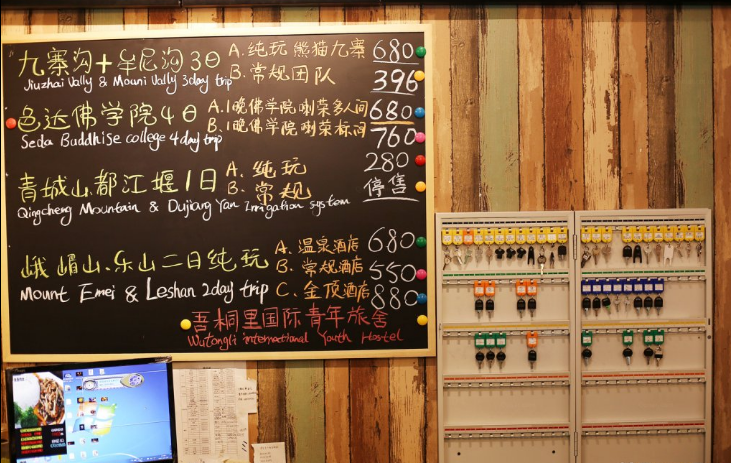 九寨沟+牟尼沟3日 A.纯玩 熊猫九寨 680
Jiuzhai Vally & Mouni Vally 3day trip B.常规团队 396
色达佛学院4日 A.1晚佛学院喇荣多人间 680
Seda Buddhise college 4day trip B.1晚佛学院喇荣标间 760
青城山.都江堰1日 A.纯玩 280
B.常规 停售
Qingcheng Mountain & Dujiang Yan Irrigation system
峨嵋山.乐山二日纯玩 A.温泉酒店 680
B.常规酒店 550
Mount Emei & Leshan 2day trip C.金顶酒店 880
吾桐里国际青年旅舍
Wutongli international Youth Hostel